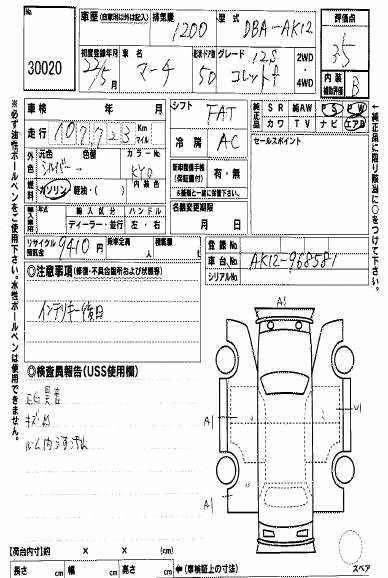 No.
30020
車歴 (自家用以外は記入)
排気量
1200
型式
DBA-AK12
評価点
3.5
初度登録年月
22/5月
車名
マーチ
形状・ドア数
5D
グレード
12S
コレットf
2WD
・
4WD
内装
補助評価
B
車検 年 月
シフト
FAT
純正品
SR 純AW PS PW
カワ TV ナビ エアB
走行
Km
マイル
冷房
AC
セールスポイント
外色
元色 色替
シルバー→
カラーNo.
KY0
内装色
燃料
ガソリン・軽油・( )
新車整備手帳
(保証書付)
有・無
※書類と一緒に保管下さい。
輸入車用
年式 輸入区分 ハンドル
ディーラー・並行 左・右
名義変更期限
月 日
リサイクル
預託金
9410円
乗車定員
人
積載量
t
登録No.
車台No.
AK12-968581
シリアルNo.
◎注意事項 (修復・不具合箇所および状態等)
インテリキー後日
◎検査員報告 (USS使用欄)
キズ・凹
ルーム内汚れ
A1
A1
U1
A1
※必ず油性ボールペンをご使用下さい。水性ボールペンは使用できません。
←純正品に限り該当に○をつけて下さい。
【荷台内寸】約 × × (cm)
長さ cm 幅 cm 高さ cm
(車検証上の寸法)
スペア